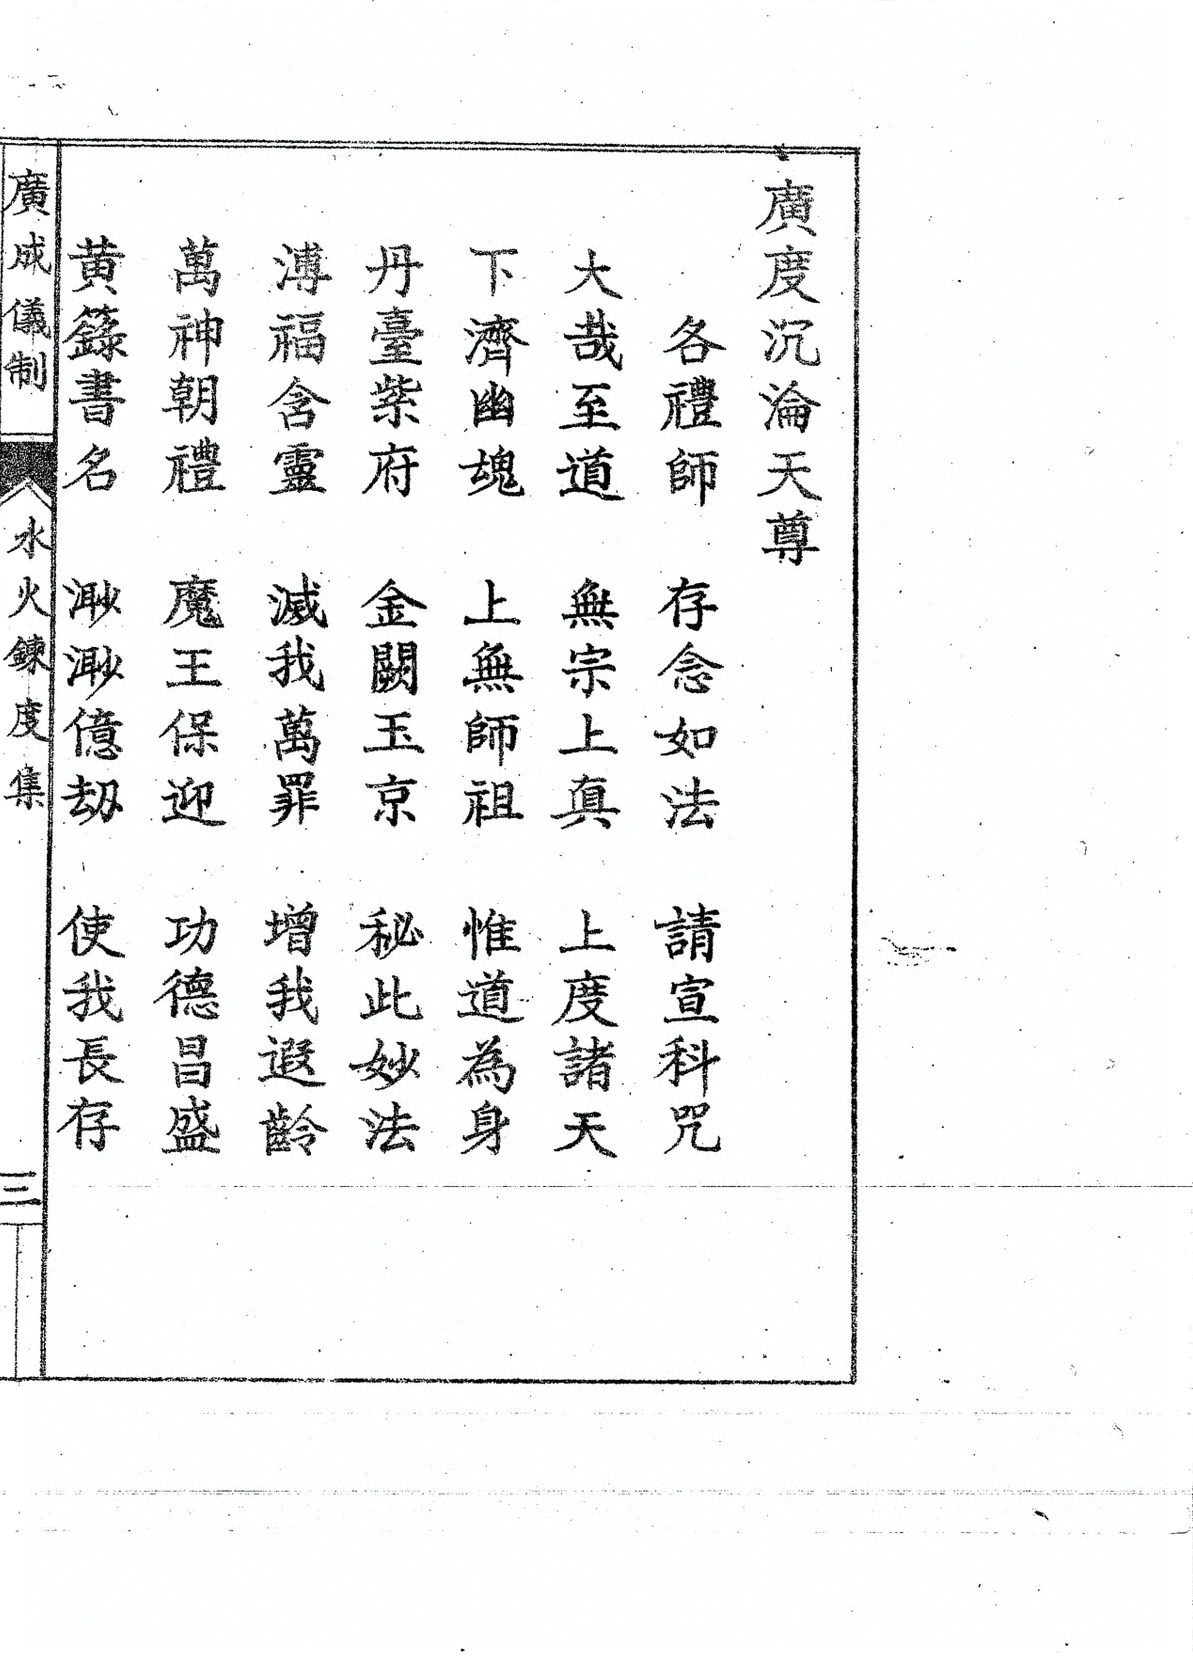 廣度沉淪天尊
各禮師 存念如法 請宣科咒
大哉至道 無宗上真 上度諸天
下濟幽魂 上無師祖 惟道為身
丹臺紫府 金闕玉京 秘此妙法
溥福含靈 滅我萬罪 增我遐齡
萬神朝禮 魔王保迎 功德昌盛
黃籙書名 渺渺億劫 使我長存
廣成儀制 水火鍊度集 三